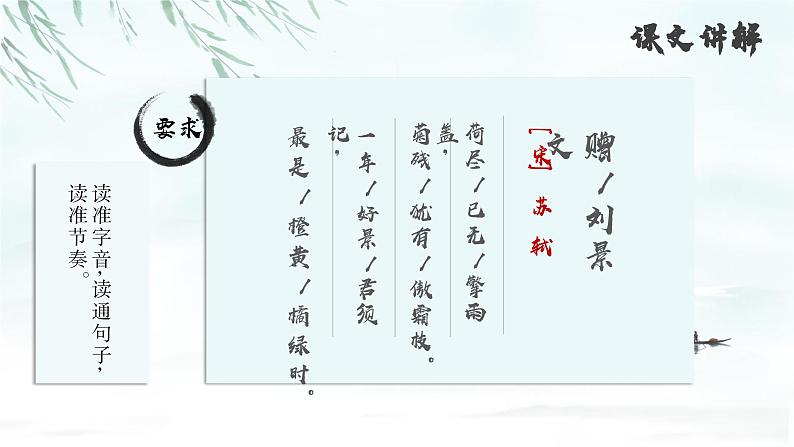 课文讲解
要求
读准字音，读通句子，
读准节奏。
赠/刘景
文
[宋] 苏轼
荷尽/已无/擎雨
盖，
菊残/犹有/傲霜枝。
一年/好景/君须
记，
最是/橙黄/橘绿时。